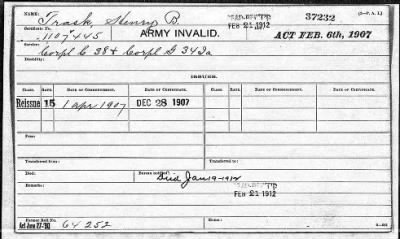 Name: Trask, Henry B. 37232 (3—P. A. I.)
Certificate No. 1107445 ARMY INVALID. FEB 21 1912 ACT FEB. 6th, 1907
Service: Corpl C 38 & Corpl G 34 Ia
Disability:
ISSUES.
CLASS. RATE. DATE OF COMMENCEMENT. DATE OF CERTIFICATE. CLASS. RATE. DATE OF COMMENCEMENT. DATE OF CERTIFICATE.
Reissue 15 1 Apr 1907 DEC 28 1907
From:
Transferred from: Transferred to:
Died: Bureau notified: Died Jan 9-1912
Remarks:
FEB 21 1912
Former Roll No.
Act June 27-'90 64252 Home: